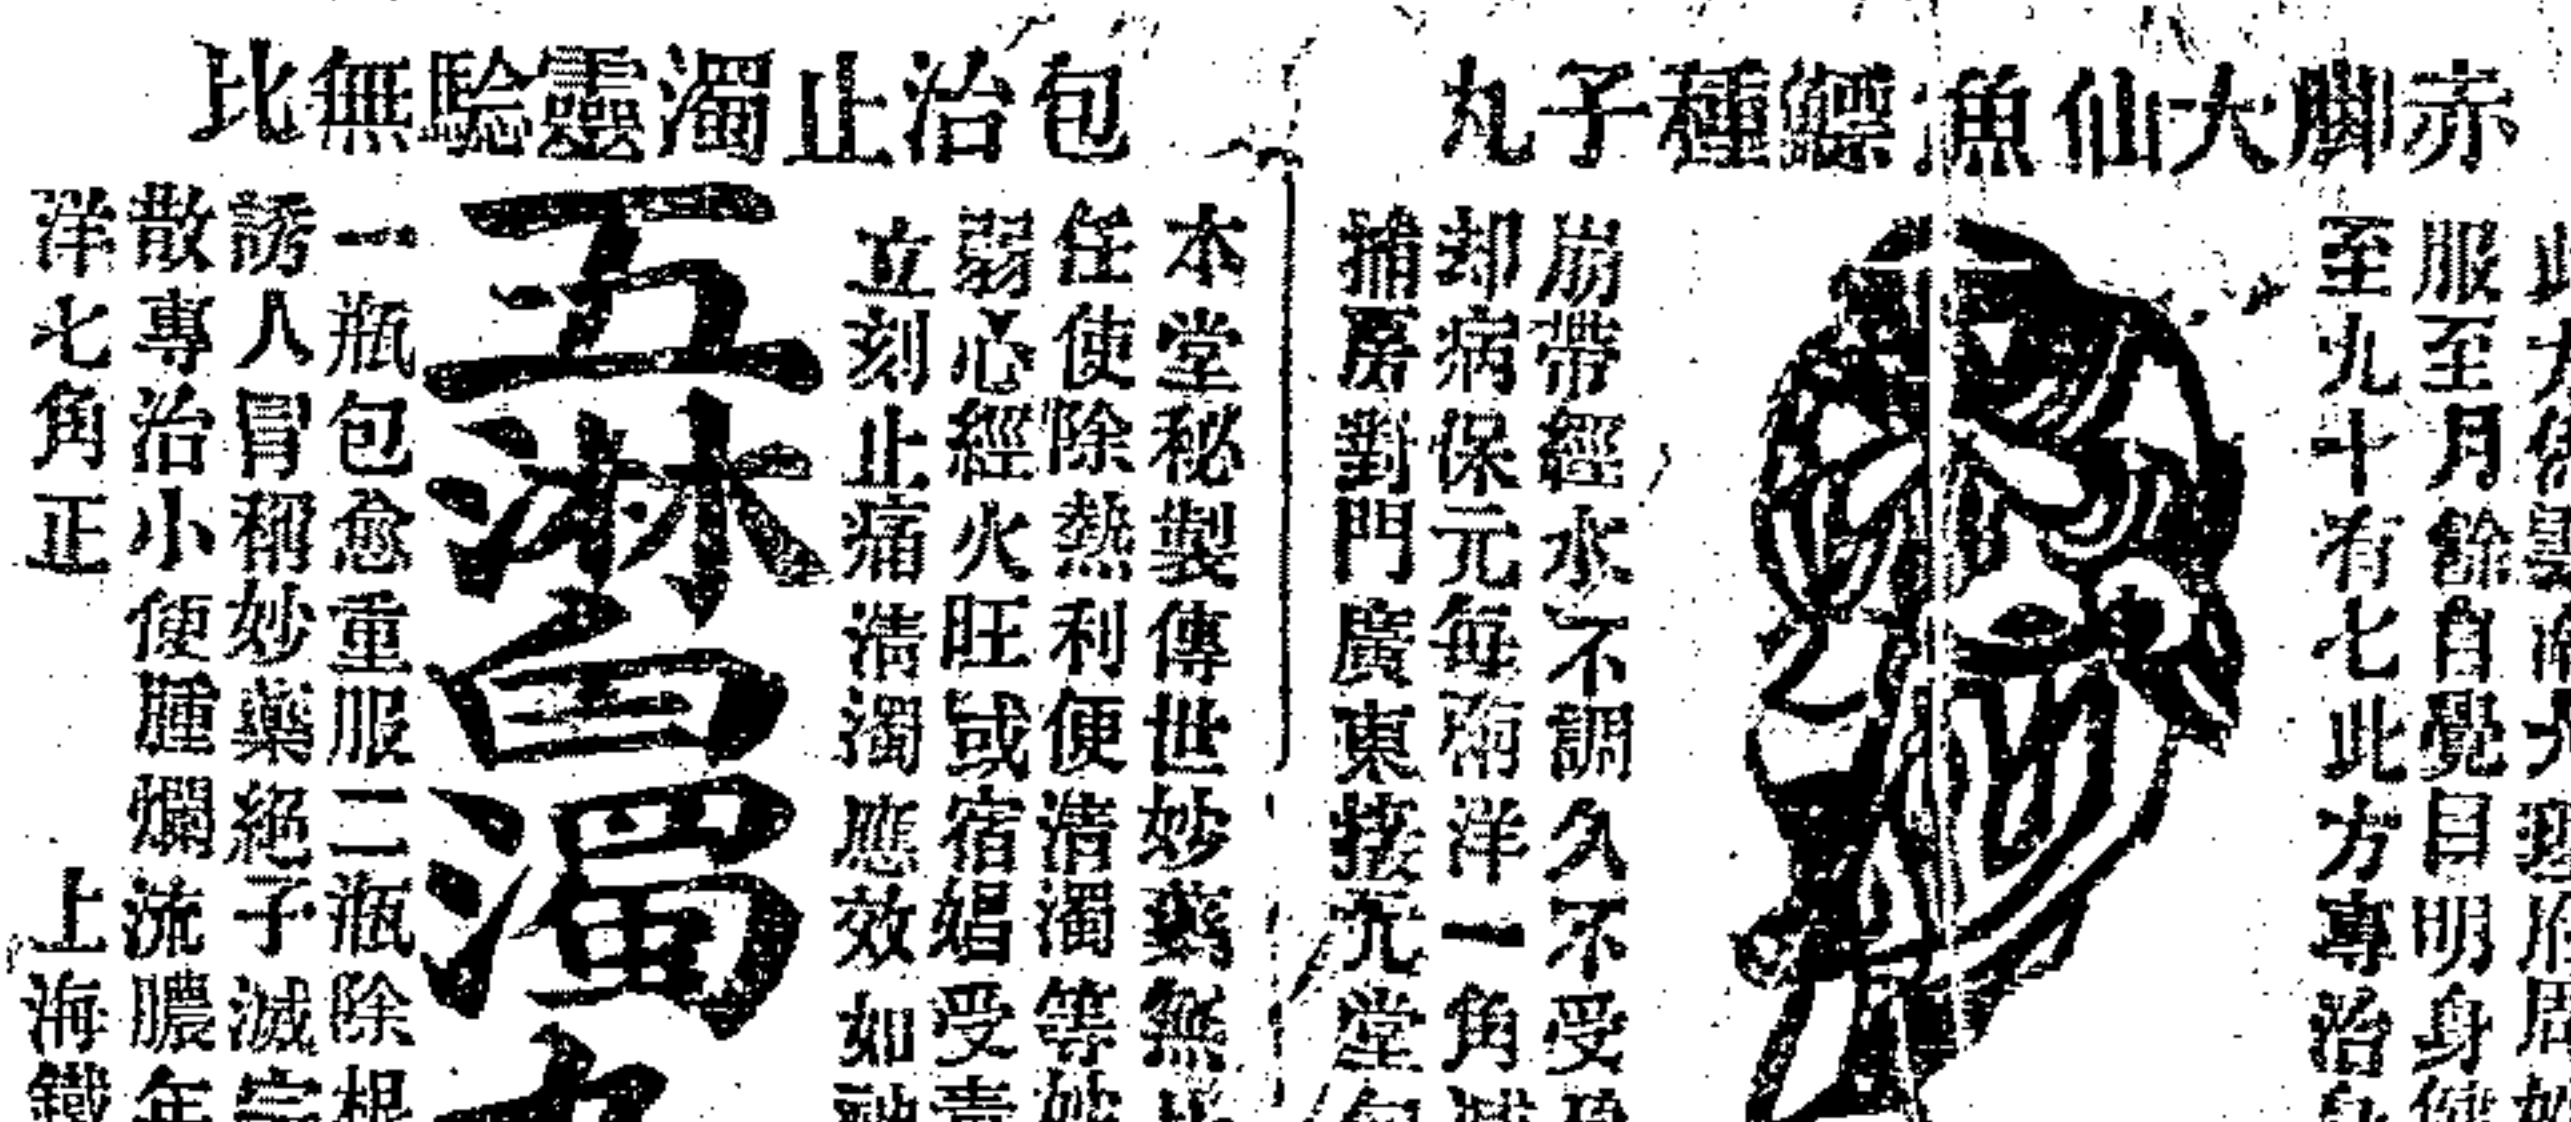 赤脚大仙魚鰾種子丸
服至月餘自覺目明身健
至九十有七此方專治
崩帶經水不調久不受
却病保元每兩洋一角
捕房對門廣東接元堂
包治止濁靈驗無比
本堂秘製傳世妙藥無比
任使除熱利便清濁等
弱心經火旺或宿娼受毒
立刻止痛清濁應效如神
五淋白濁丸
一瓶包愈重服二瓶除根
誘人冒稱妙藥絕子滅宗
散專治小便腫爛流膿年
洋七角正 上海鐵